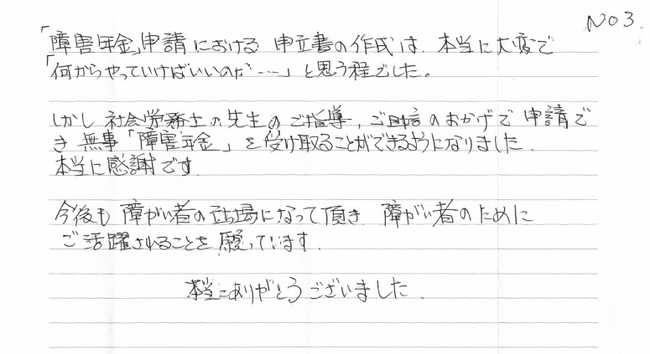 NO3.
「障害年金」申請における 申立書の作成は、本当に大変で
「何からやっていけばいいのか……」と思う程でした。
しかし 社会労務士の先生のご指導、ご助言のおかげで 申請で
き 無事「障害年金」を受け取ることができるようになりました。
本当に感謝です
今後も 障がい者の立場になって頂き 障がい者のために
ご活躍されることを 願っています.
本当にありがとうございました.